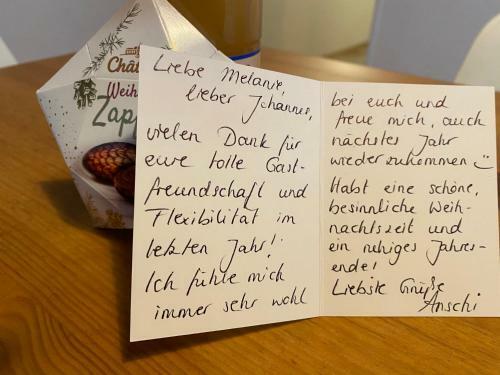 Chât
Weih
Zap
Liebe Melanie,
lieber Johannes,
vielen Dank für
eure tolle Gast-
freundschaft und
Flexibilität im
letzten Jahr!
Ich fühle mich
immer sehr wohl
bei euch und
freue mich, auch
nächstes Jahr
wiederzukommen :)
Habt eine schöne,
besinnliche Weih-
nachtszeit und
ein ruhiges Jahres-
ende!
Liebste Grüße
Anschi